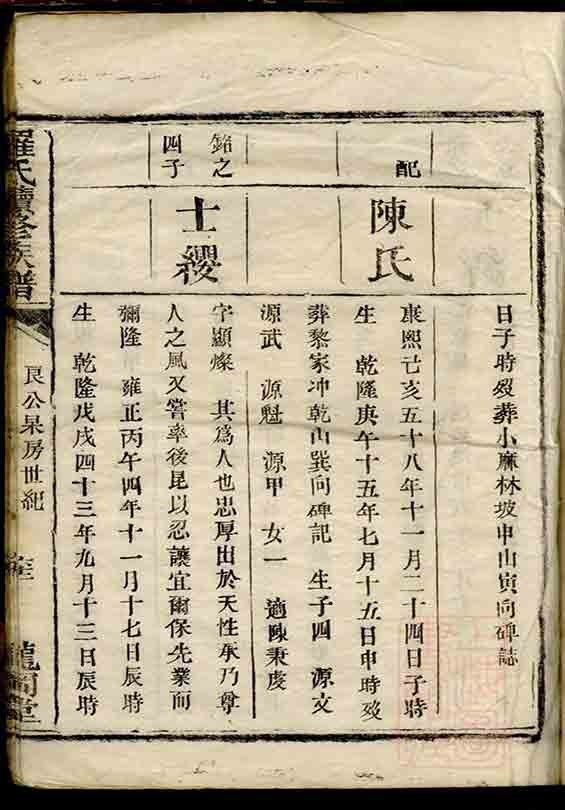 日子時歿葬小麻林坡申山寅向碑誌
配
陳氏
康熙己亥五十八年十一月二十四日子時
生 乾隆庚午十五年七月十五日申時歿
葬黎家冲乾山巽向碑記 生子四 源文
源武 源魁 源甲 女一 適陳秉度
銘之
四子
士纓
字顯燦 其爲人也忠厚出於天性承乃尊
人之風又嘗率後昆以忍讓宜爾保先業而
彌隆 雍正丙午四年十一月十七日辰時
生 乾隆戊戌四十三年九月十三日辰時
羅氏續修族譜
艮公杲房世紀